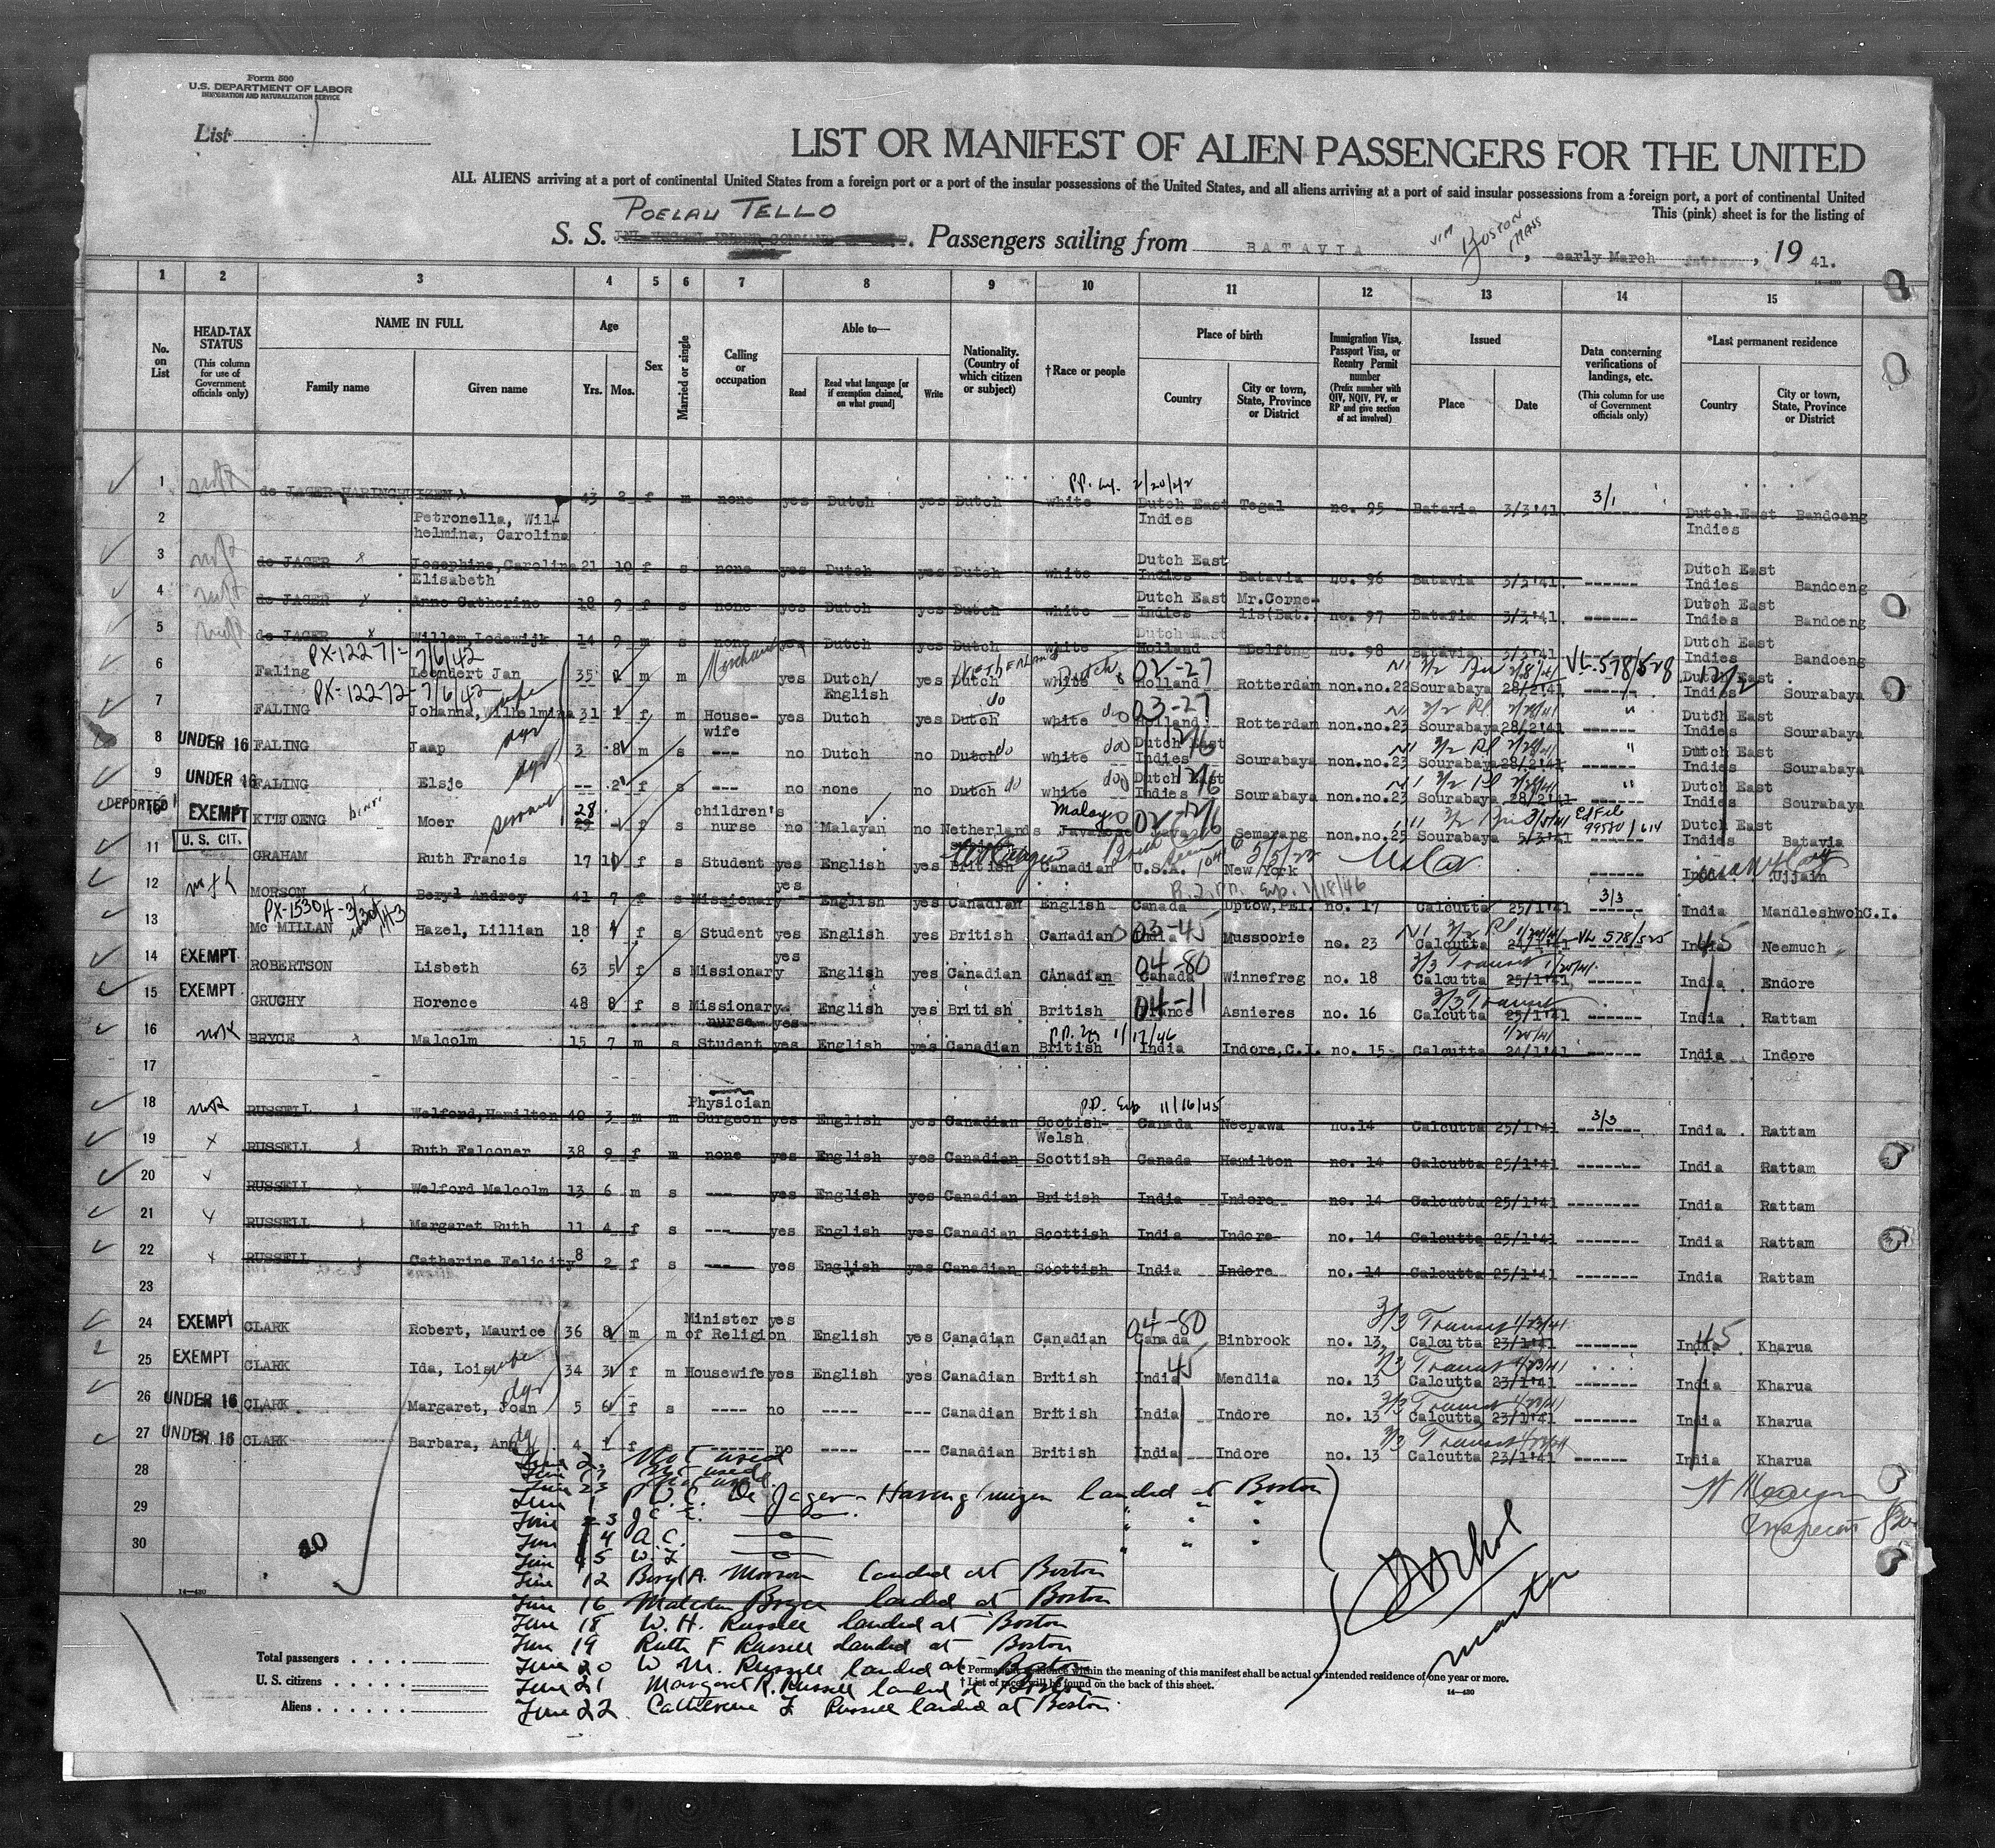 Form 500
U.S. DEPARTMENT OF LABOR
IMMIGRATION AND NATURALIZATION SERVICE
List 1
LIST OR MANIFEST OF ALIEN PASSENGERS FOR THE UNITED
ALL ALIENS arriving at a port of continental United States from a foreign port or a port of the insular possessions of the United States, and all aliens arriving at a port of said insular possessions from a foreign port, a port of continental United
This (pink) sheet is for the listing of
POELAU TELLO
S. S. Passengers sailing from BATAVIA VIA BOSTON MASS, early March, 19 41.
1 2 3 4 5 6 7 8 9 10 11 12 13 14 15
No. on List
HEAD-TAX STATUS (This column for use of Government officials only)
NAME IN FULL Family name Given name
Age Yrs. Mos.
Sex
Married or single
Calling or occupation
Able to— Read Read what language [or if exemption claimed, on what ground] Write
Nationality. (Country of which citizen or subject)
†Race or people
Place of birth Country City or town, State, Province or District
Immigration Visa, Passport Visa, or Reentry Permit number (Prefix number with QIV, NQIV, PV, or RP and give section of act involved)
Issued Place Date
Data concerning verifications of landings, etc. (This column for use of Government officials only)
*Last permanent residence Country City or town, State, Province or District
2/20/42
1 de JAGER 43 2 f m none yes Dutch yes Dutch white Dutch East Indies Tegal no. 95 Batavia 3/3'41 3/1 Dutch East Indies Bandoeng
2 Petronella, Wilhelmina, Carolina
3 de JAGER Josephine, Carolina Elisabeth 21 10 f s none yes Dutch yes Dutch white Dutch East Indies Batavia no. 96 Batavia 3/3'41 ------ Dutch East Indies Bandoeng
4 de JAGER Anne Catherine 18 9 f s none yes Dutch yes Dutch white Dutch East Indies Mr.Cornelis(Bat. no. 97 Batavia 3/3'41. ------ Dutch East Indies Bandoeng
5 de JAGER Willem, Lodewijk 14 9 m s none yes Dutch yes Dutch white Holland Delftng no. 98 Batavia 3/3'41 ------ Dutch East Indies Bandoeng
PX-12271- 7/6/42
6 Faling Leendert Jan 35 m m Merchant yes Dutch/English yes Dutch white Dutch 02-27 Holland Rotterdam non.no.22 Sourabaya 28/2'41 VL-578/528 Dutch East Indies Sourabaya
PX-12272- 7/6/42 wife
7 FALING Johanna, Wilhelmina 31 1 f m House-wife yes Dutch yes Dutch do white do 03-27 Holland Rotterdam non.no.23 Sourabaya 28/2'41 " Dutch East Indies Sourabaya
8 UNDER 16 FALING Jaap 3 8 m s --- no Dutch no Dutch do white do Dutch East Indies Sourabaya non.no.23 Sourabaya 28/2'41 " Dutch East Indies Sourabaya
9 UNDER 16 FALING Elsje -- 2 f s --- no none no Dutch do white do Dutch East Indies Sourabaya non.no.23 Sourabaya 28/2'41 " Dutch East Indies Sourabaya
DEPORTED
10 EXEMPT KITJOENG Moer servant 28 f s children's nurse no Malayan no Netherlands Malay Javanese Java Semarang non.no.25 Sourabaya 5/3'41 99580/614 Dutch East Indies Batavia
U. S. CIT.
11 GRAHAM Ruth Francis 17 10 f s Student yes English yes British Canadian U.S.A. New York 5/5/23 ------ Ujjain
12 MORSON Beryl Audrey 41 7 f s Missionary yes English yes Canadian English Canada no. 17 Calcutta 25/1'41 3/3 India Mandleshwoh C.I.
Exp. 1/18/46
PX-15304-3/30/43
13 Mc MILLAN Hazel, Lillian 18 1 f s Student yes English yes British Canadian 03-45 India Mussoorie no. 23 Calcutta 24/1'41 VL 578/525 India 45 Neemuch
14 EXEMPT ROBERTSON Lisbeth 63 5 f s Missionary yes English yes Canadian Canadian 04-80 Canada Winnefreg no. 18 3/3 Transit Calcutta 25/1'41 ------ India Endore
15 EXEMPT GRUCHY Horence 48 8 f s Missionary nurse yes English yes British British 04-11 France Asnieres no. 16 3/3 Transit Calcutta 25/1'41 ------ India Rattam
1/17/46 1/20/41
16 BRYCE Malcolm 15 7 m s Student yes English yes Canadian British India Indore, C.I. no. 15 Calcutta 24/1'41 ------ India Indore
17
18 RUSSELL Welford, Hamilton 40 3 m m Physician Surgeon yes English yes Canadian Scotish-Welsh Canada Neepawa no.14 Calcutta 25/1'41 3/3 India Rattam
P.P. Exp 11/16/45
19 RUSSELL Ruth Falconer 38 9 f m none yes English yes Canadian Scottish Canada Hamilton no. 14 Calcutta 25/1'41 ------- India Rattam
20 RUSSELL Welford Malcolm 13 6 m s --- yes English yes Canadian British India Indore no. 14 Calcutta 25/1'41 ------- India Rattam
21 RUSSELL Margaret Ruth 11 4 f s --- yes English yes Canadian Scottish India Indore no. 14 Calcutta 25/1'41 ------- India Rattam
22 RUSSELL Catherine Felicity 8 2 f s --- yes English yes Canadian Scottish India Indore no. 14 Calcutta 25/1'41 ------- India Rattam
23
24 EXEMPT CLARK Robert, Maurice 36 8 m m Minister of Religion yes English yes Canadian Canadian 04-80 Canada Binbrook no. 13 3/3 Transit 1/23/41 Calcutta 23/1'41 ------- India 45 Kharua
25 EXEMPT CLARK Ida, Lois wife 34 3 f m Housewife yes English yes Canadian British India 45 Mendlia no. 13 3/3 Transit 1/23/41 Calcutta 23/1'41 ------- India Kharua
26 UNDER 16 CLARK Margaret, Joan 5 6 f s ---- no ---- --- Canadian British India Indore no. 13 3/3 Transit 1/23/41 Calcutta 23/1'41 ------- India Kharua
27 UNDER 16 CLARK Barbara, Ann 4 1 f ------ no ---- --- Canadian British India Indore no. 13 3/3 Transit 1/23/41 Calcutta 23/1'41 ------- India Kharua
28
29
30
Line 2. Not used
Line 17 Not used
Line 23 Not used
Line 1 P.W.C. De Jager-Haringhuizen landed at Boston
Line 3 J.C.E. " " "
Line 4 A.C. " " "
Line 5 W.L
Line 12 Beryl A. Morson landed at Boston
Line 16 Malcolm Bryce landed at Boston
Line 18 W. H. Russell landed at Boston
Line 19 Ruth F Russell landed at Boston
Line 20 W M. Russell landed at Boston
Line 21 Margaret R. Russell landed at Boston
Line 22 Catherine F Russell landed at Boston
master
Inspector
14—430
Total passengers
U. S. citizens
Aliens
* Permanent residence within the meaning of this manifest shall be actual or intended residence of one year or more.
† List of races will be found on the back of this sheet.
14—430